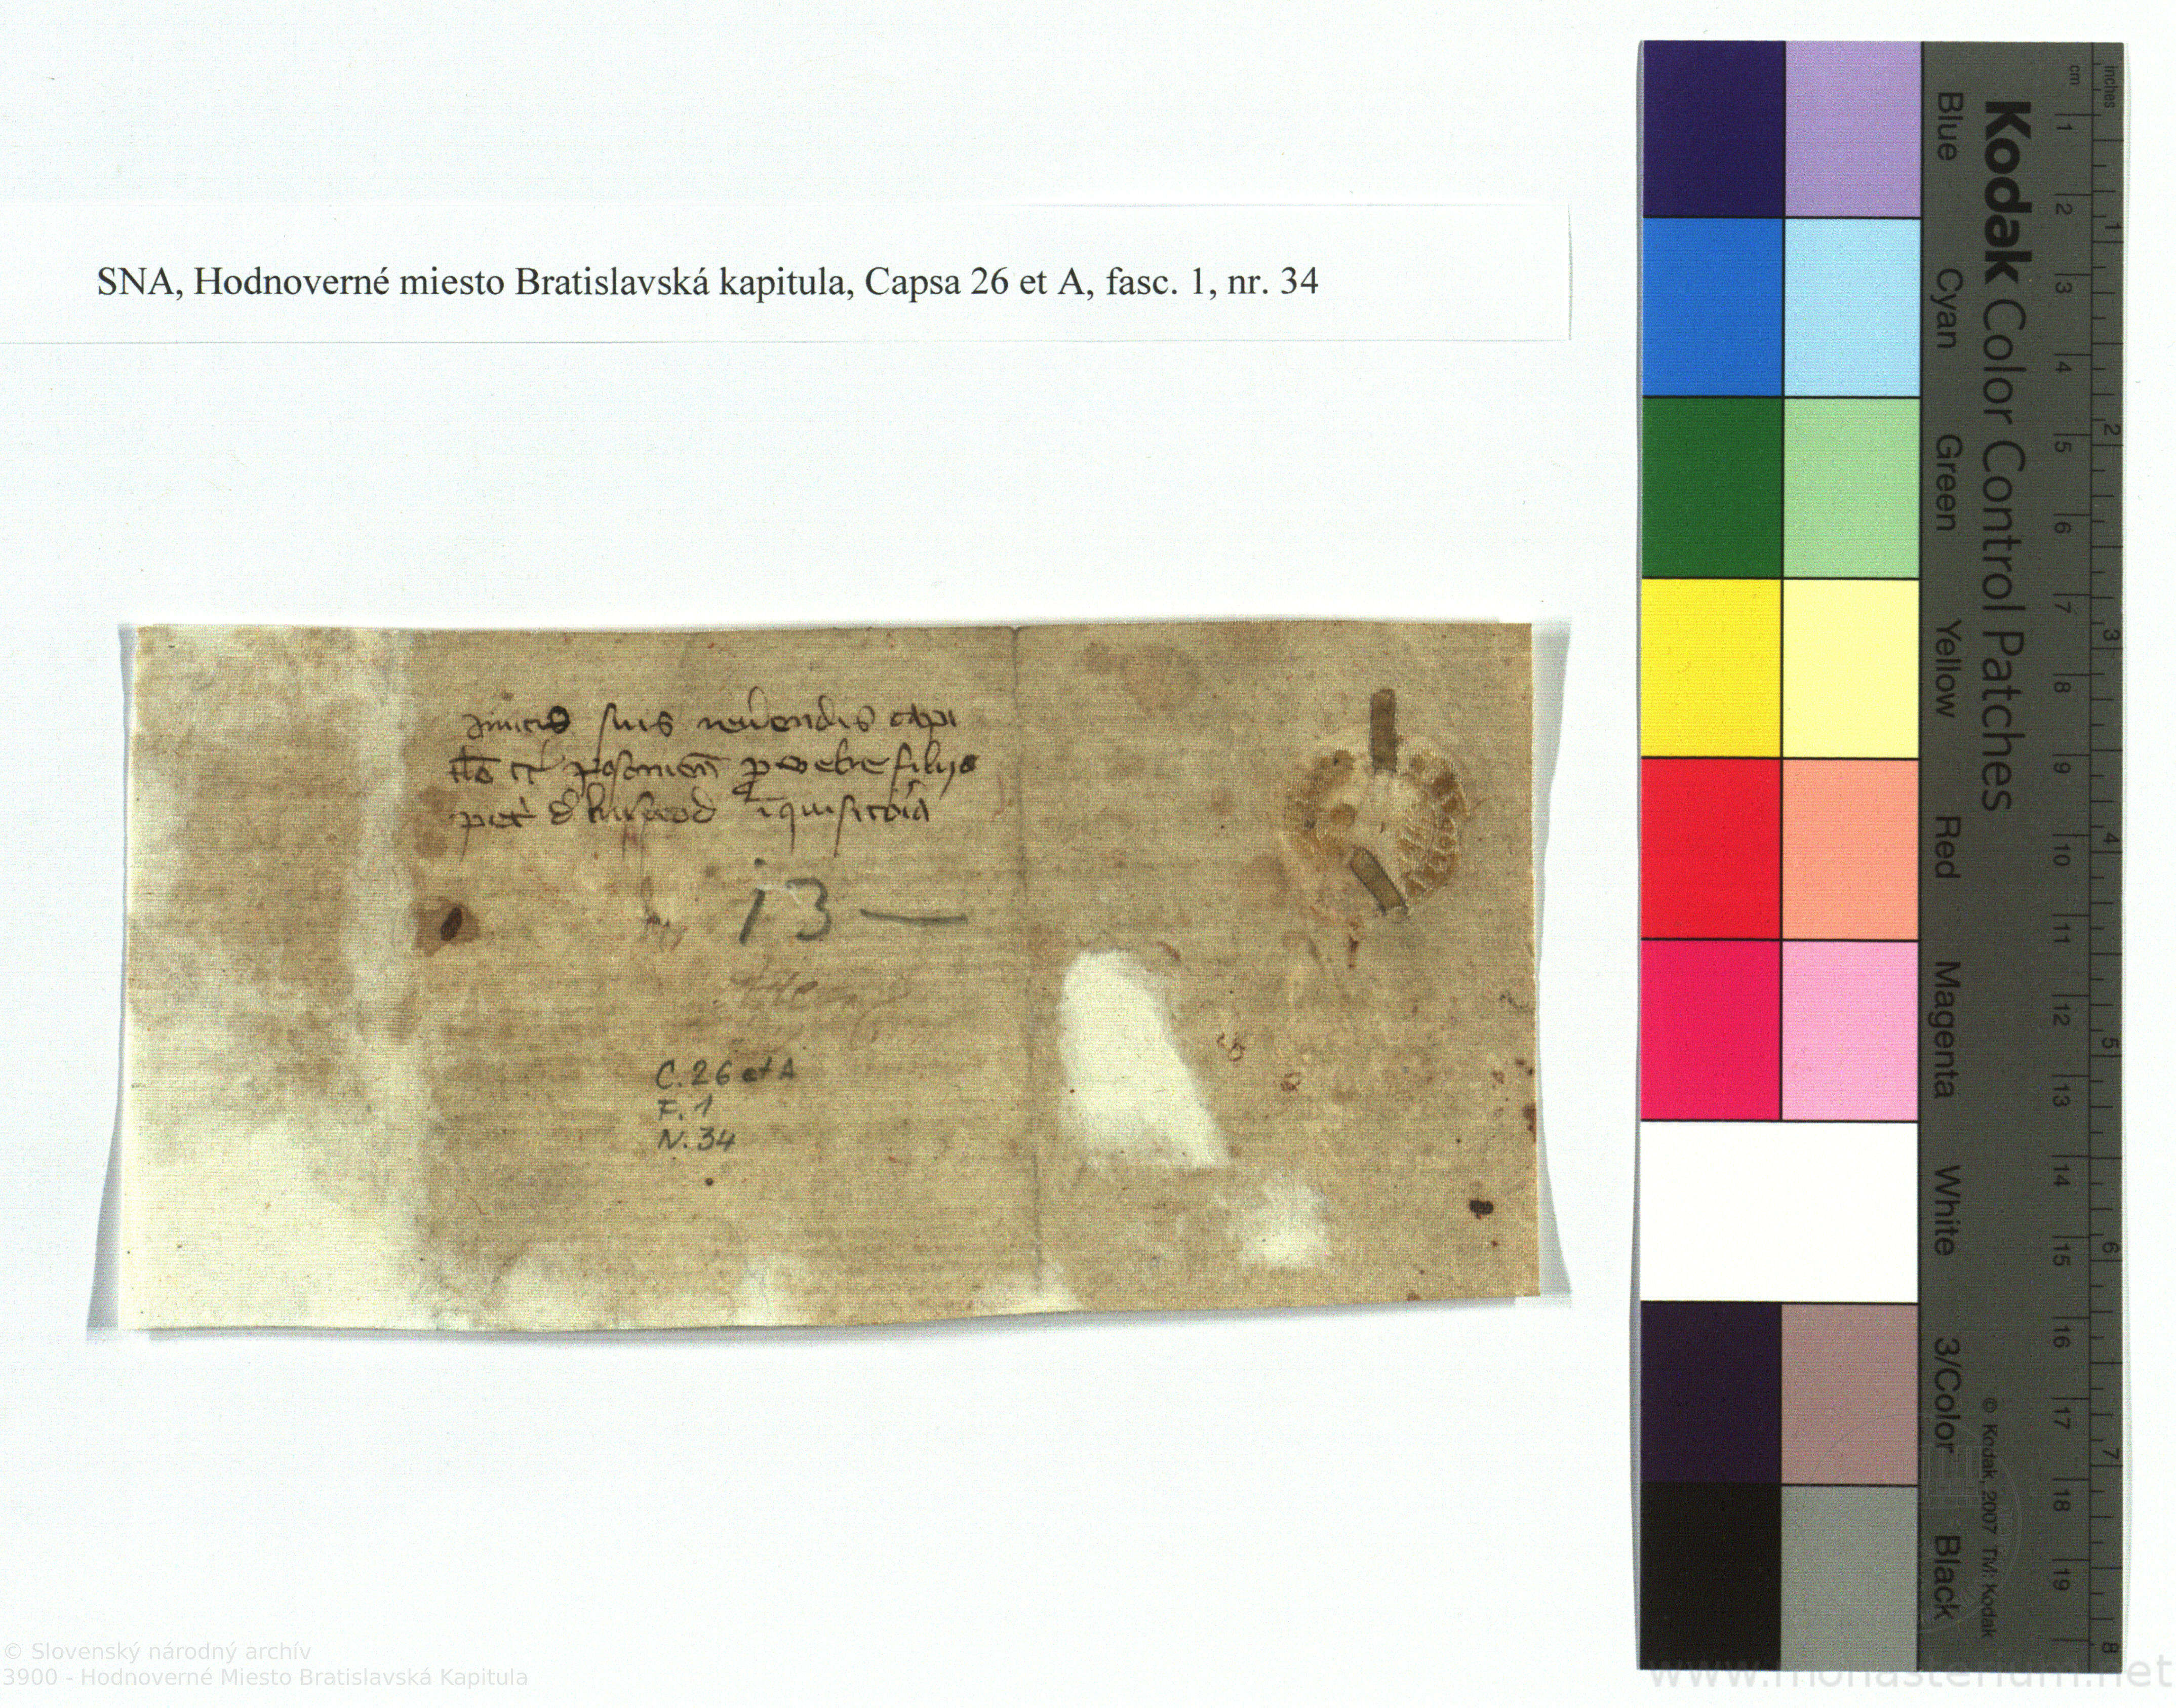 SNA, Hodnoverné miesto Bratislavská kapitula, Capsa 26 et A, fasc. 1, nr. 34
amicis suis reuerendis capi
tlo eccl posonien p velre filijs
petri d inquisitoia
13 —
C. 26 et A
F. 1
N. 34
Kodak Color Control Patches
Blue Cyan Green Yellow Red Magenta White 3/Color Black
© Kodak, 2007 TM: Kodak
cm 1 2 3 4 5 6 7 8 9 10 11 12 13 14 15 16 17 18 19
inches 1 2 3 4 5 6 7 8
© Slovenský národný archív
3900 - Hodnoverné Miesto Bratislavská Kapitula
www.monasterium.net